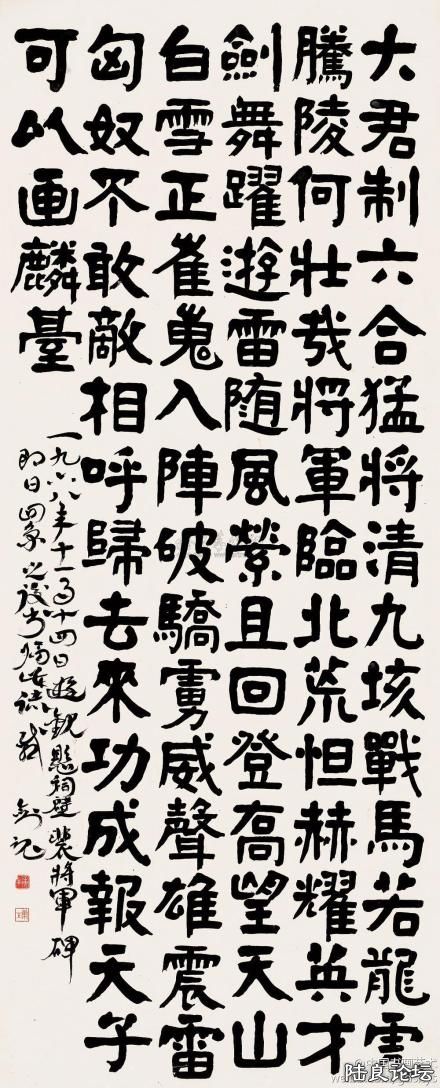 大君制六合猛将清九垓戰馬若龍雲
騰陵何壮哉将軍臨北荒怛赫耀英才
劍舞躍游雷随風縈且回登高望天山
白雪正崔嵬入陣破驕虜威聲雄震雷
匈奴不敢敵相呼歸去來功成報天子
可以画麟臺
一九六八年十一月十四日遊觀祠壁裴將軍碑
即日回京之後書
陆良论坛